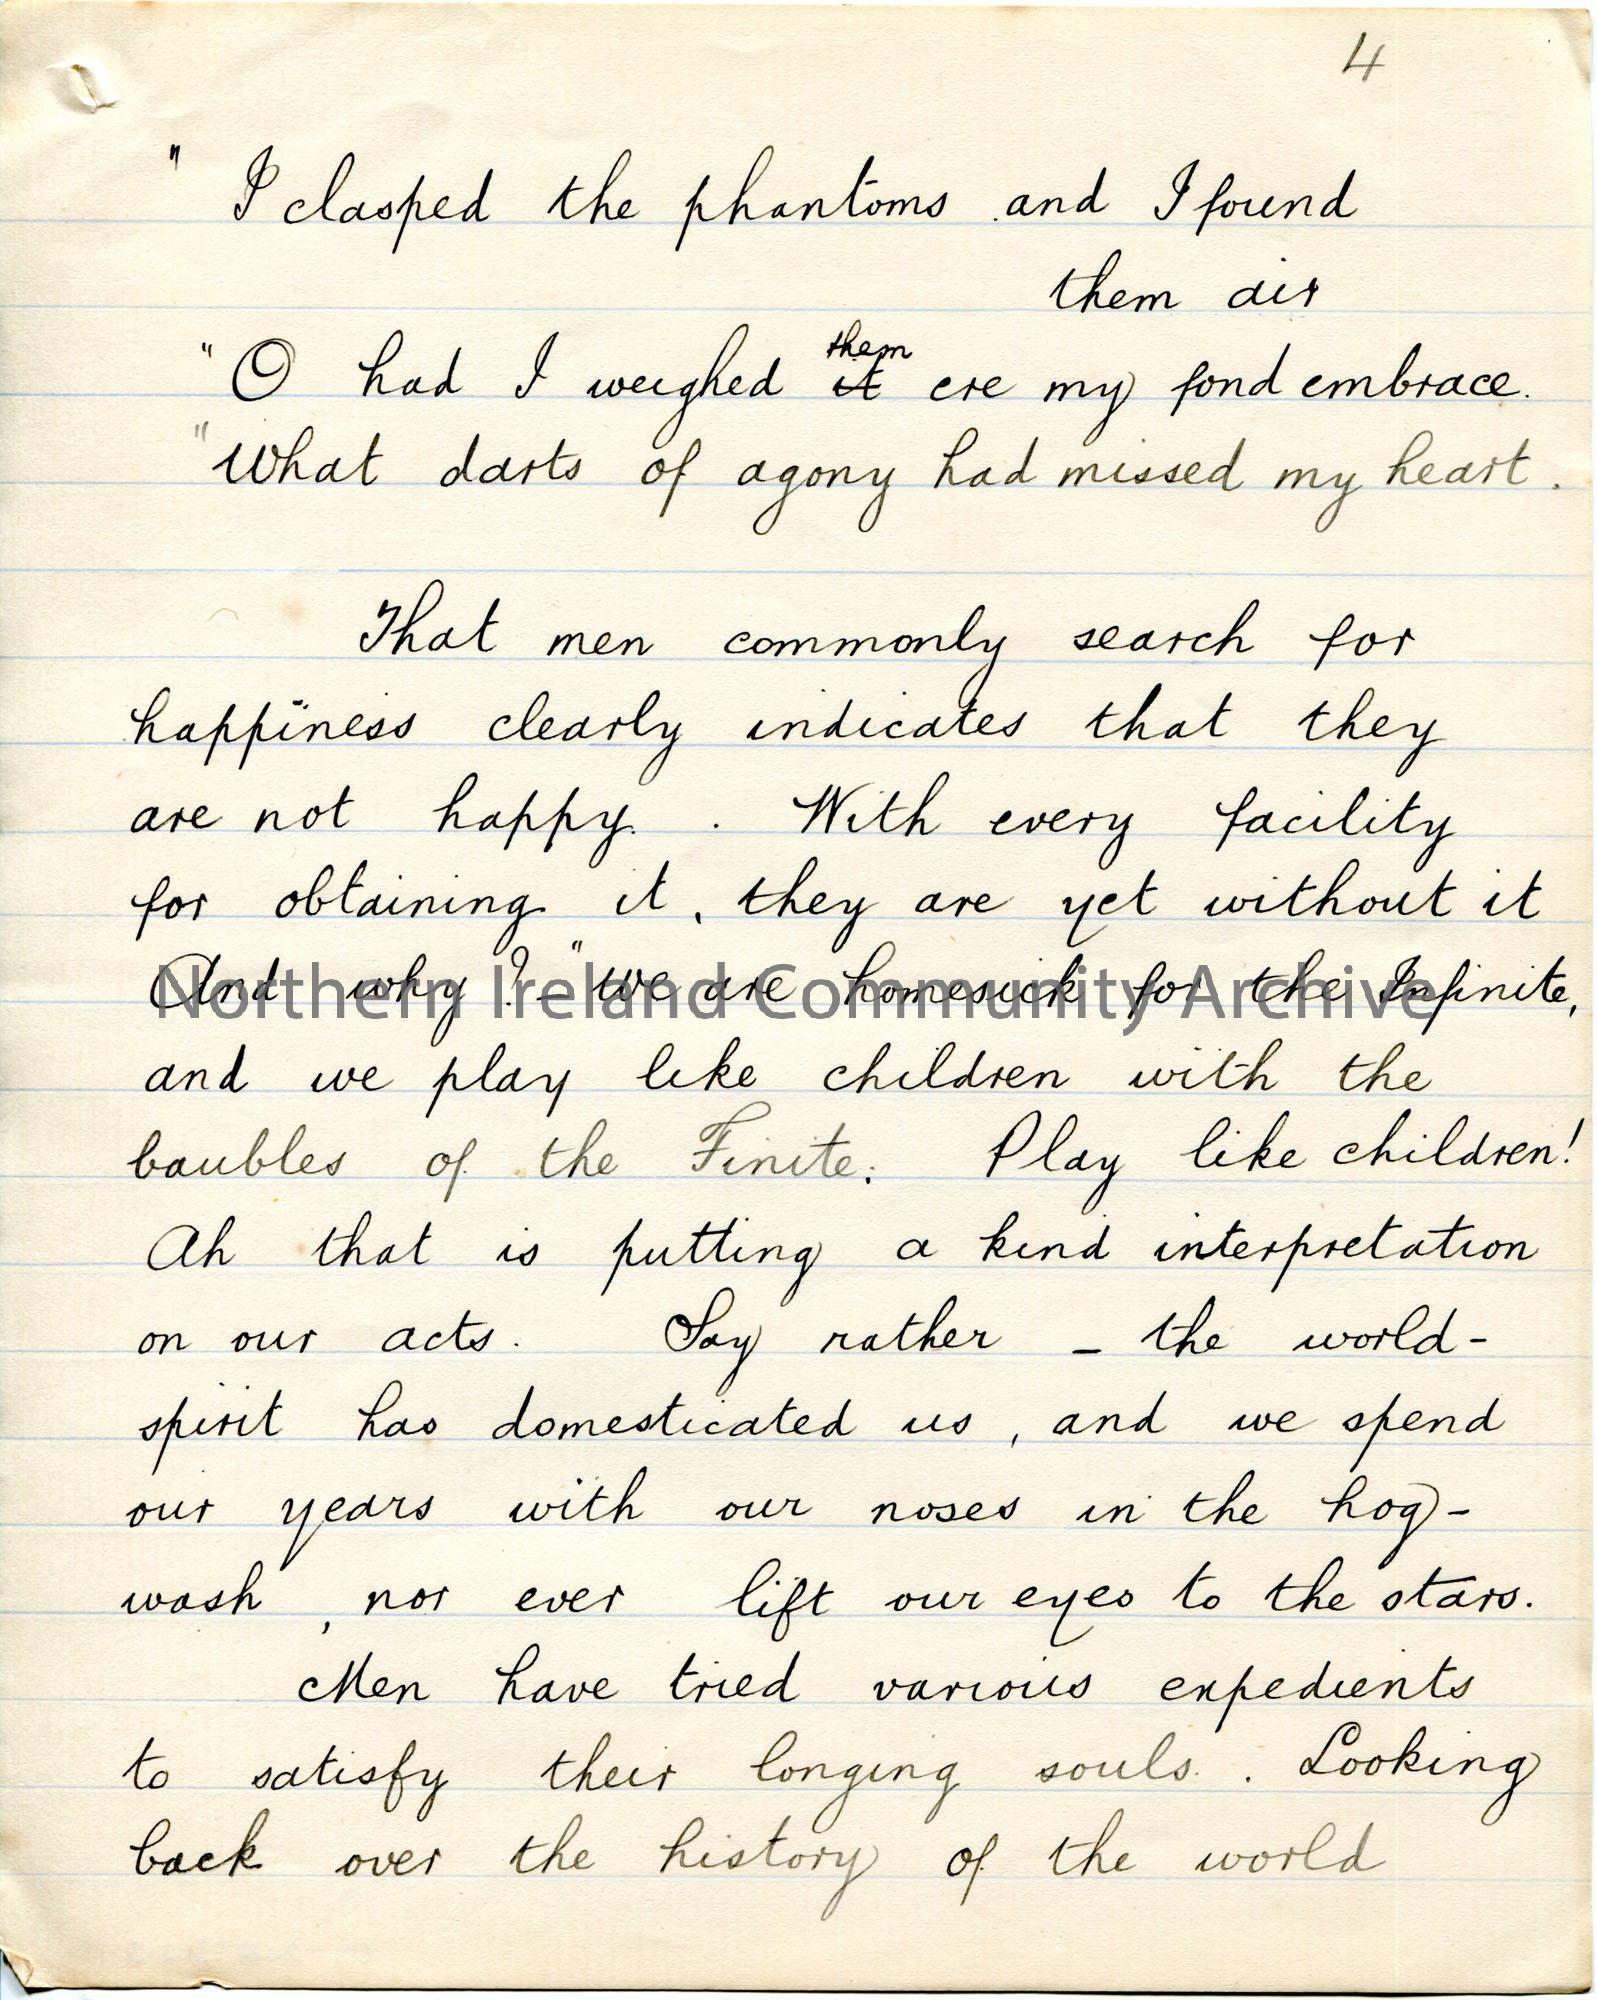 4
" I clasped the phantoms and I found
them air
"O had I weighed it them ere my fond embrace.
"What darts of agony had missed my heart.
That men commonly search for
happiness clearly indicates that they
are not happy. With every facility
for obtaining it, they are yet without it
And why? – "We are homesick for the Infinite,
and we play like children with the
baubles of the Finite. Play like children!
Ah that is putting a kind interpretation
on our acts. Say rather – the world-
spirit has domesticated us, and we spend
our years with our noses in the hog-
wash, nor ever lift our eyes to the stars.
Men have tried various expedients
to satisfy their longing souls. Looking
back over the history of the world
Northern Ireland Community Archive